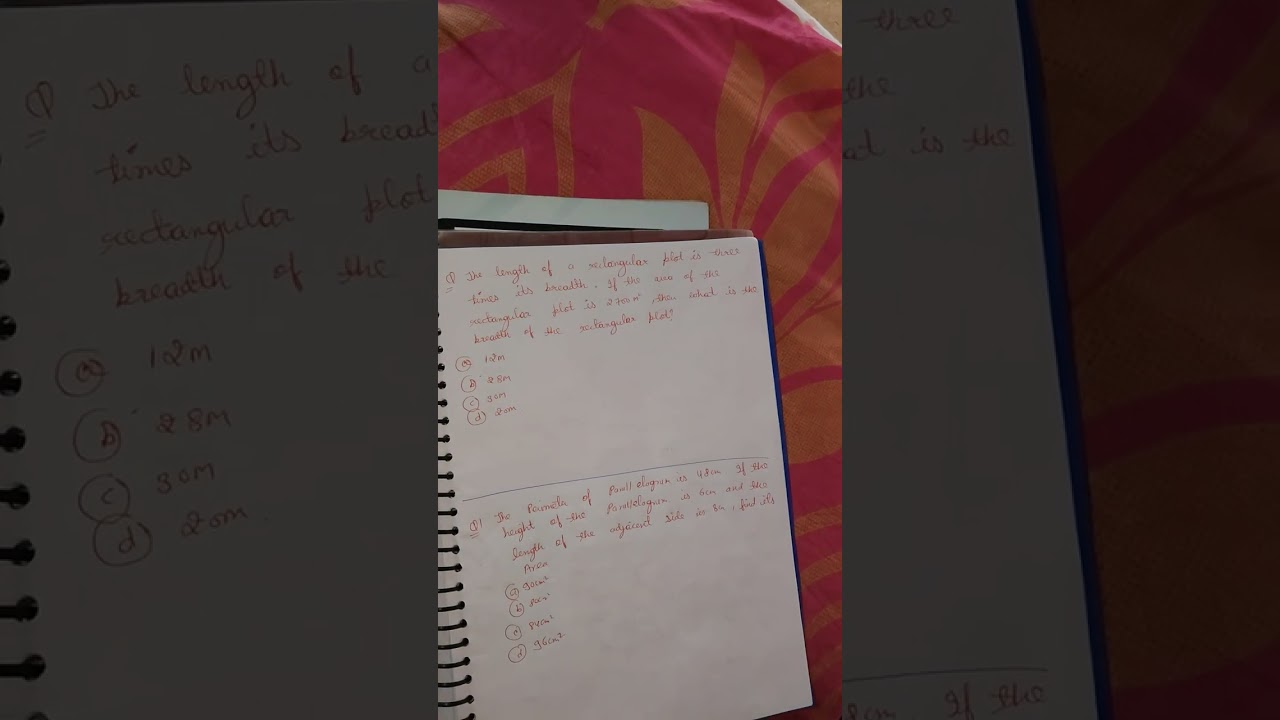 Q The length of a rectangular plot is three
times its breadth. If the area of the
rectangular plot is 2700m², then what is the
breadth of the rectangular plot?
(a) 12m
(b) 28m
(c) 30m
(d) 20m
Q1 The Perimeter of Parallelogram is 48cm If the
height of the Parallelogram is 6cm and the
length of the adjacent side is 8cm, find its
Area
(a) 90cm²
(b) 80cm²
(c) 84cm²
(d) 96cm²